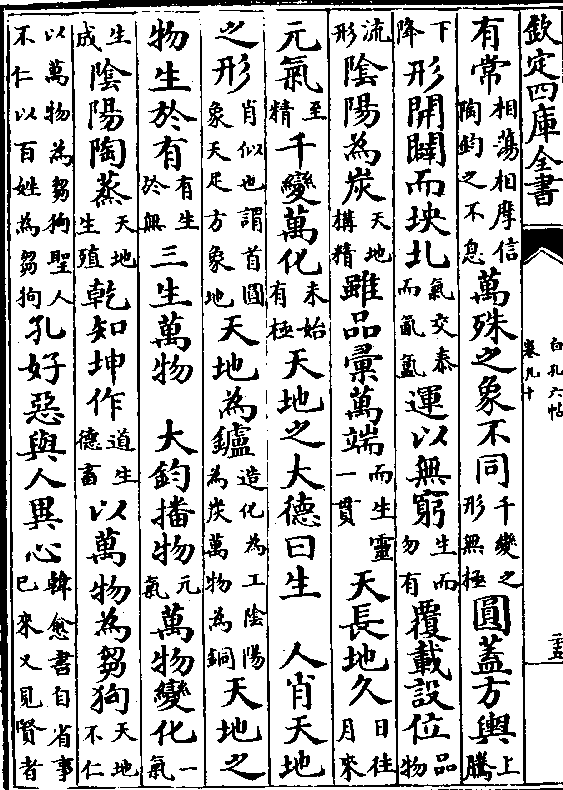 欽定四庫全書
白孔六帖
卷九十
有常相蕩相摩信陶鈞之不息萬殊之象不同千變之形無極圓蓋方輿上騰
下降形開闢而坱北氣交泰而氤氳運以無窮生而勿有覆載設位品物
流形陰陽為炭天地構精雖品彙萬端而生靈一貫 天長地久日往月來
元氣至精千變萬化未始有極天地之大德曰生 人肖天地
之形肖似也謂首圓象天足方象地天地為鑪造化為工陰陽為炭萬物為銅天地之
物生於有有生於無三生萬物 大鈞播物元氣萬物變化一氣
生成陰陽陶蒸天地生殖乾知坤作道生德畜以萬物為芻狗天地不仁
以萬物為芻狗聖人不仁以百姓為芻狗孔好惡與人異心韓愈書自省事已來又見賢者